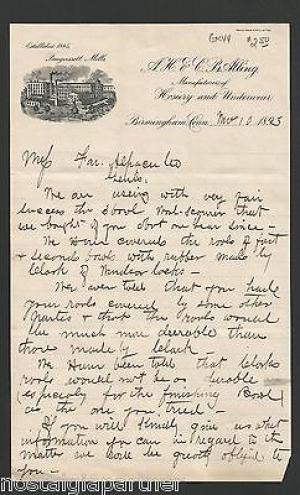 Established 1845.
A. H. & C. B. Alling
Manufacturers of
Hosiery and Underwear
Birmingham, Conn. Nov 10 1893
$2.50
Mess Far. Alpaca Co
We are using with very fair
success the 3 bowl Wool-scourer that
we bought of you about one year since –
We have covered the rools of first
& second bowls with rubber made by
Clark of Windsor Locks –
We are told that you had
your rools covered by some other
parties & that the rools would
be much more desirable than
those made by Clark
We have been told that Clarks
rools would not be as durable
especialy for the finishing Bowl
as the one you tried –
If you will kindly give us what
information you can in regard to the
matter we will be greatly obliged to
you –
nostalgiapartner